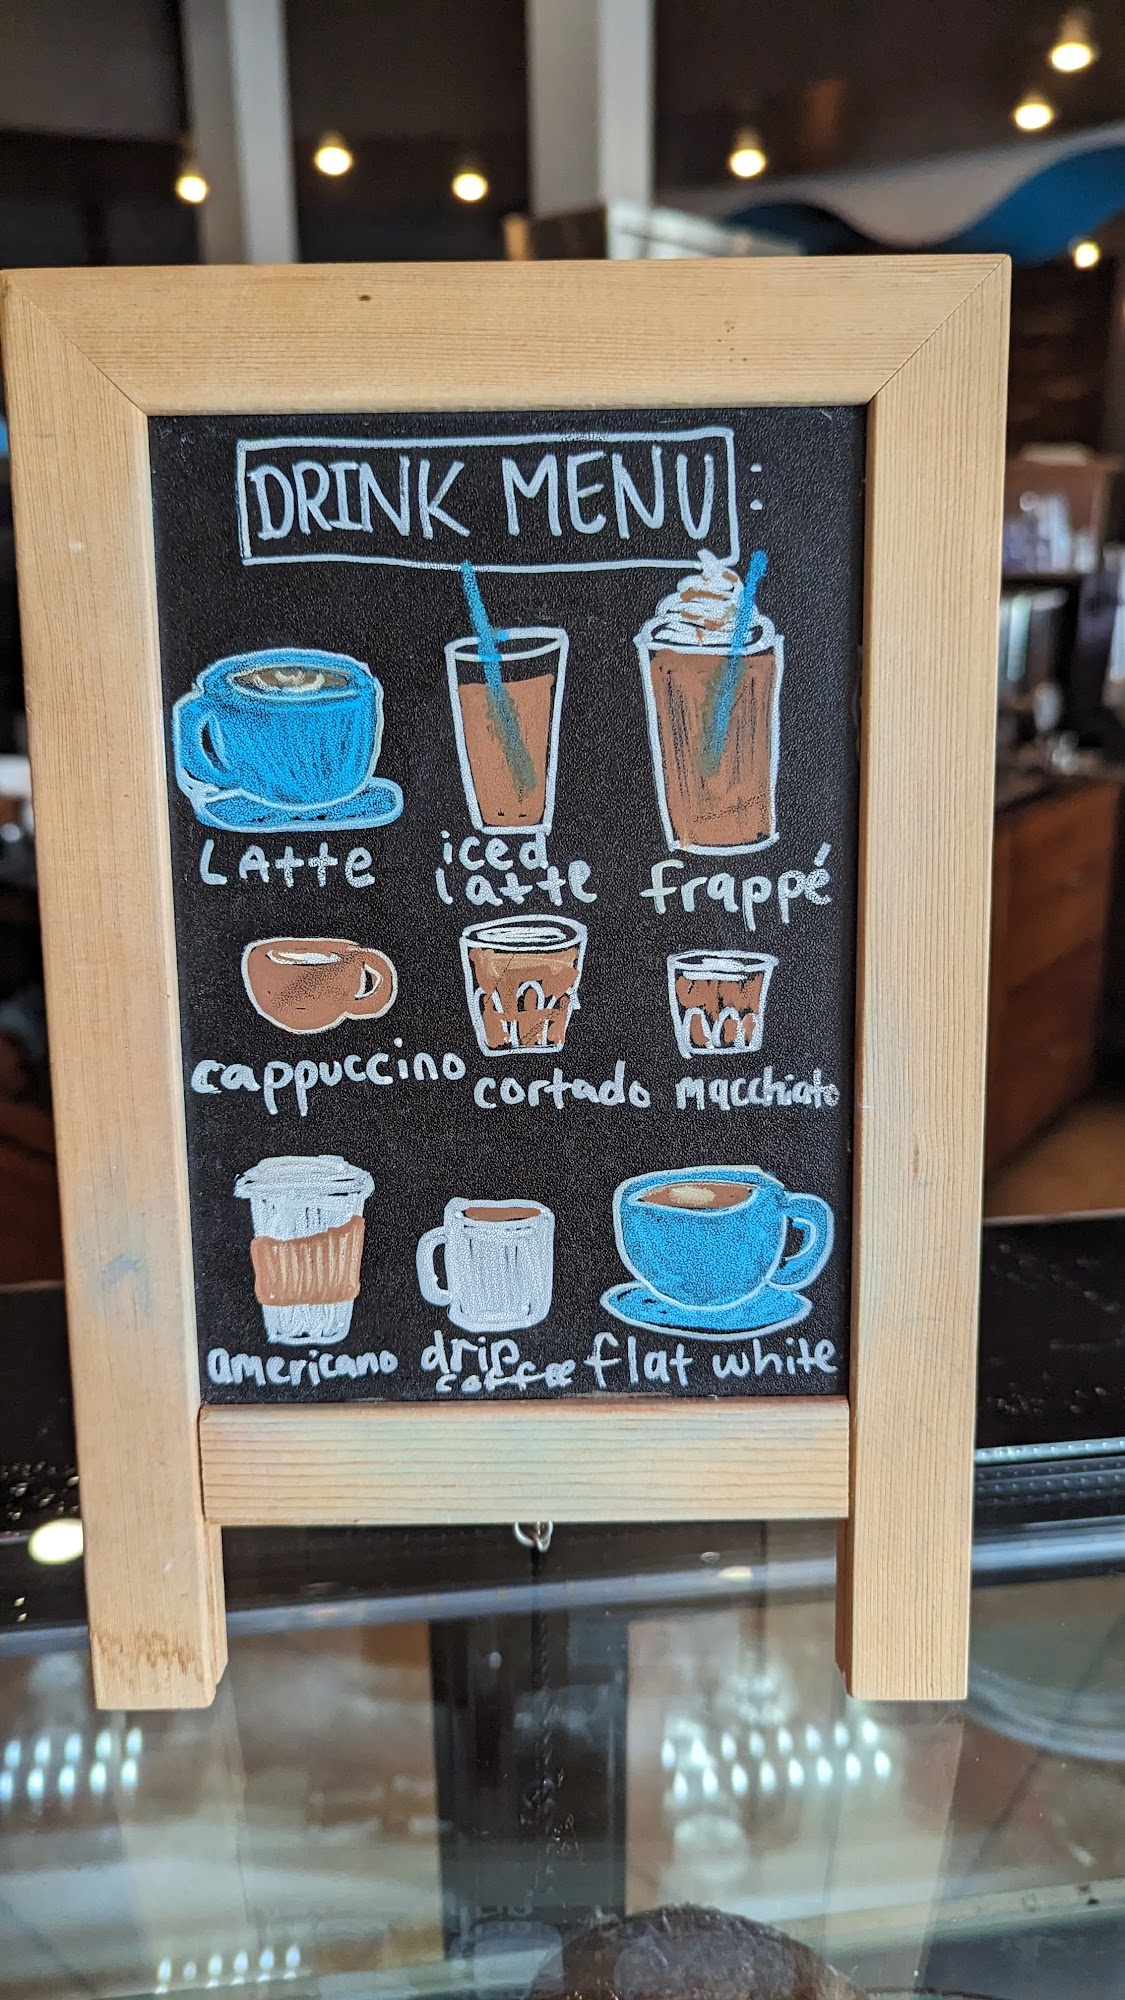 DRINK MENU:
LAtte
iced
latte
frappé
cappuccino
cortado
macchiato
americano
drip
coffee
flat white